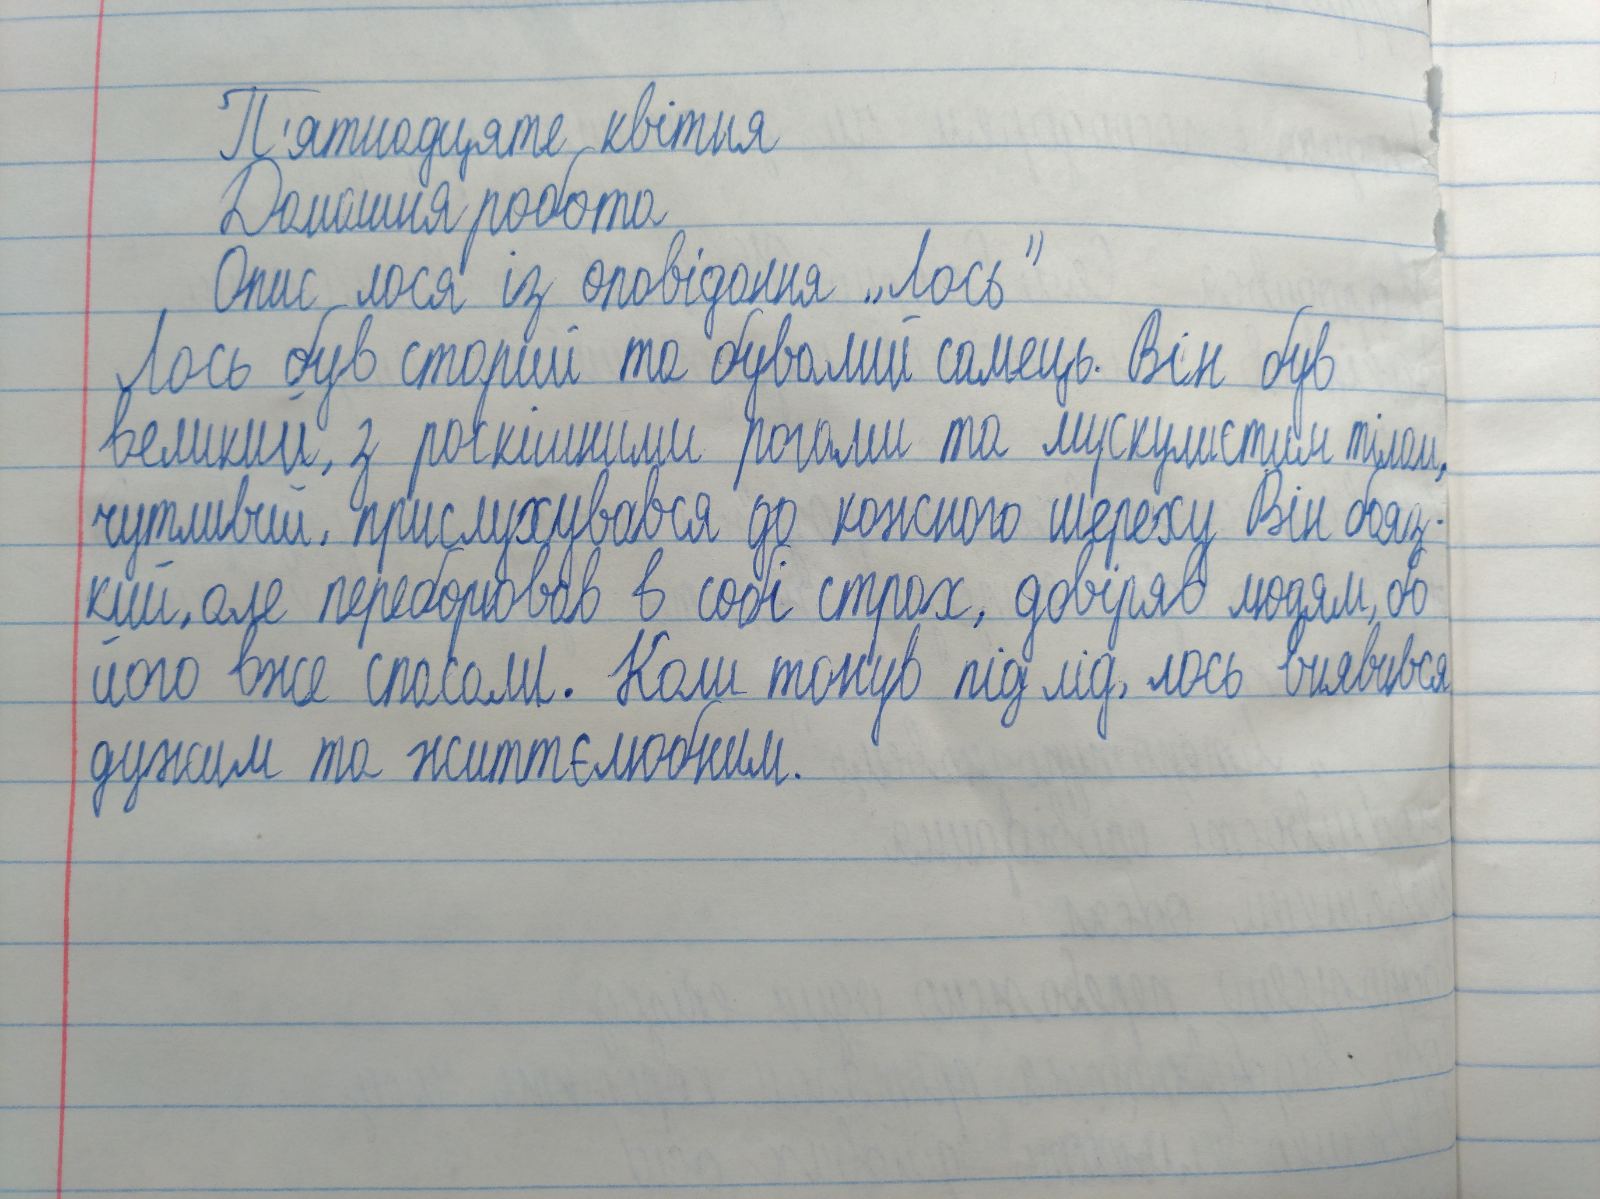 П'ятнадцяте квітня
Домашня робота
Опис лося із оповідання „Лось"
Лось був старий та бувалий самець. Він був
великий, з розкішними рогами та мускулистим тілом,
чутливий, прислухувався до кожного шереху Він бояз-
кий, але переборював в собі страх, довіряв людям, бо
його вже спасали. Коли тонув під лід, лось виявився
дужим та життєлюбним.